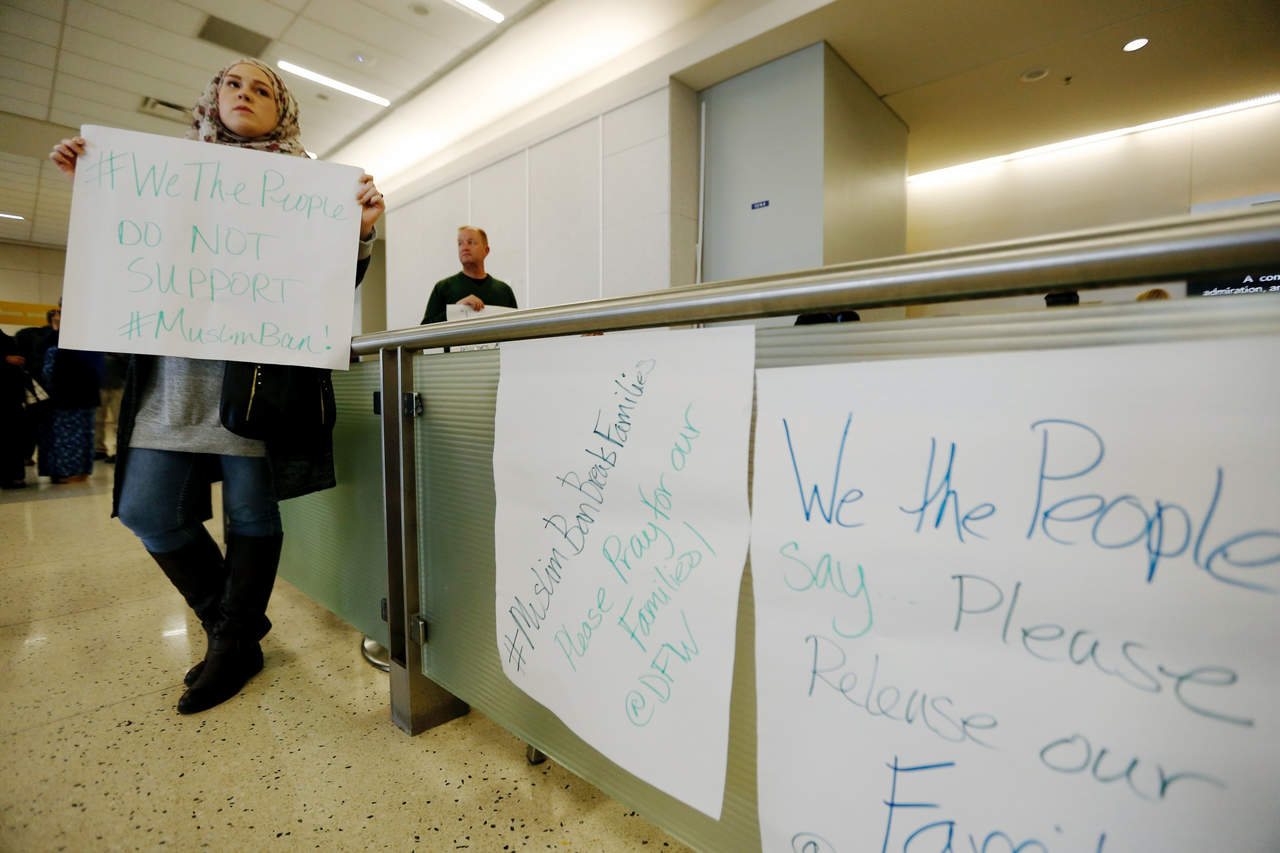 #WeThePeople
DO NOT
SUPPORT
#MuslimBan!
#MuslimBanBreaksFamilies
Please Pray for our
Families!
@DFW
We the People
Say Please
Release our
Fami
@
A com
admiration, an